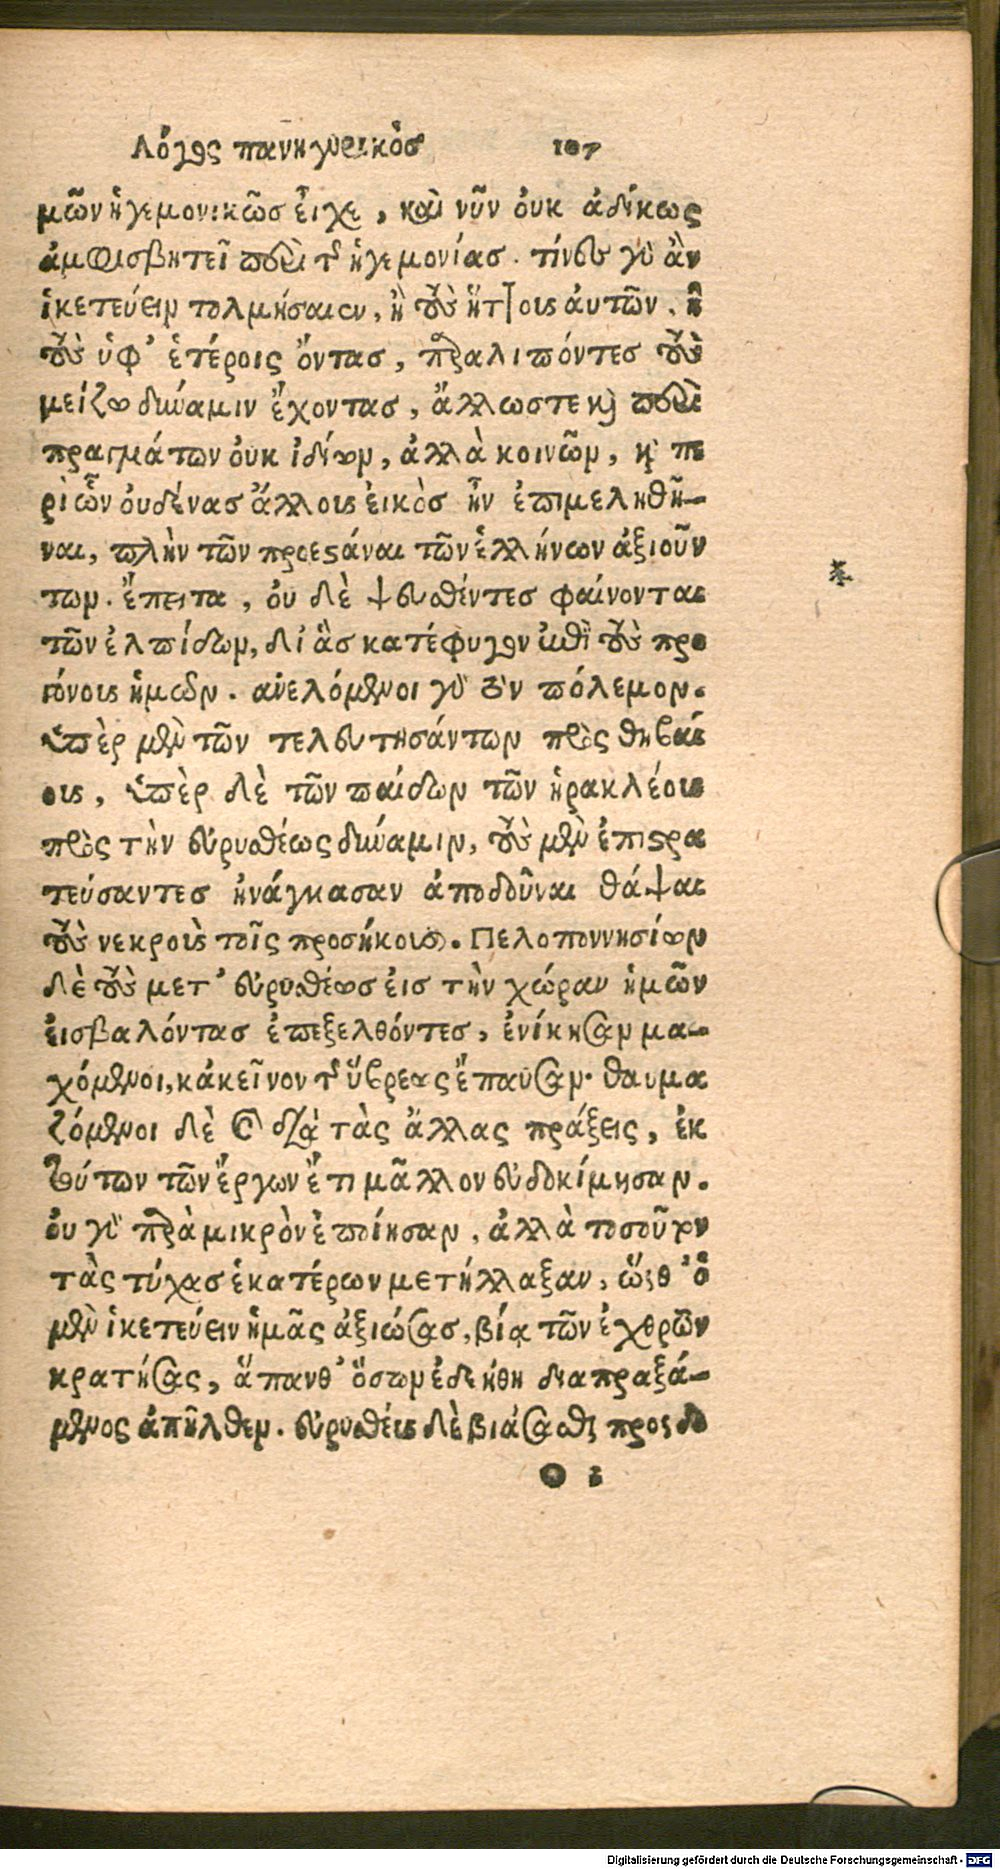 Λόγος πανηγυρικὸσ 107
μῶν ἡγεμονικῶσ εἶχε, καὶ νῦν ὀυκ ἀδίκως
ἀμφισβητεῖ περὶ τῆς ἡγεμονίασ. τίνας γὰρ ἂν
ἱκετεύειν τολμήσαιεν, ἢ τοὺς ἥττους ἁυτῶν, ἢ
τοὺς ὑφ' ἑτέροις ὄντασ, παραλιπόντεσ τοὺς
μείζω δύναμιν ἔχοντασ, ἄλλωστε καὶ περὶ
πραγμάτων ὀυκ ἰδίων, ἀλλὰ κοινῶν, καὶ πε
ρὶ ὧν ὀυδένασ ἄλλους ἐικὸσ ἦν ἐπιμεληθῆ-
ναι, πλὴν τῶν προεστάναι τῶν ἑλλήνων ἀξιούν
των. ἔπειτα, ὀυ δὲ ψευσθέντεσ φαίνονται
τῶν ἐλπίδων, δι' ἃσ κατέφυγον ἐπὶ τοὺς προ
γόνους ἡμῶν. ἀνελόμενοι γὰρ τὸν πόλεμον.
ὑπὲρ μὲν τῶν τελευτησάντων πρὸς θηβαί
ους, ὑπὲρ δὲ τῶν παίδων τῶν ἡρακλέους
πρὸς τὴν εὐρυσθέως δύναμιν, τοὺς μὲν ἐπιστρα
τεύσαντεσ ἠνάγκασαν ἀποδοῦναι θάψαι
τοὺς νεκροὺς τοῖς προσήκουσι. Πελοποννησίων
δὲ τοὺς μετ' εὐρυσθέωσ ἐισ τὴν χώραν ἡμῶν
ἐισβαλόντασ ἐπεξελθόντεσ, ἐνίκησαν μα-
χόμενοι, κἀκεῖνον τῆς ὕβρεως ἔπαυσαν. θαυμα
ζόμενοι δὲ καὶ διὰ τὰς ἄλλας πράξεις, ἐκ
τούτων τῶν ἔργων ἔτι μᾶλλον εὐδοκίμησαν.
ὀυ γὰρ παρὰ μικρὸν ἐποίησαν, ἀλλὰ τοσοῦτον
τὰς τύχασ ἑκατέρων μετήλλαξαν, ὥσθ' ὁ
μὲν ἱκετεύειν ἡμᾶς ἀξιώσασ, βίᾳ τῶν ἐχθρῶν
κρατήσας, ἅπανθ' ὅσων ἐδεήθη διαπραξά-
μενος ἀπῆλθεν. εὐρυσθεὺς δὲ βιάσασθαι προσδο
O 2
*
Digitalisierung gefördert durch die Deutsche Forschungsgemeinschaft - DFG